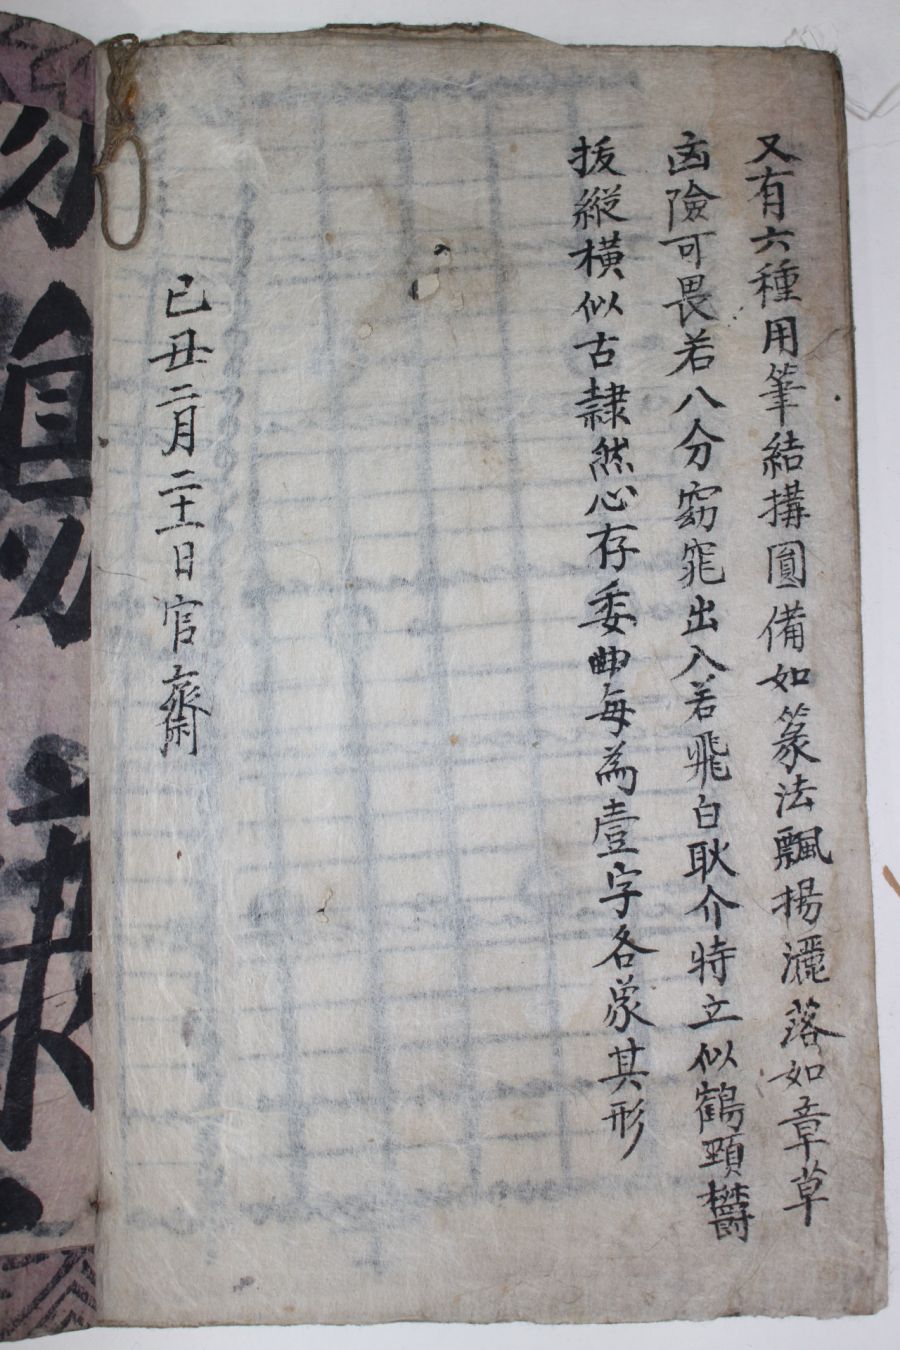 又有六種用筆結搆圓備如篆法飄揚灑落如章草
凶險可畏若八分窈窕出入若飛白耿介特立似鶴頭欝
拔縱橫似古隷然心存委曲每為壹字各象其形
己丑二月二十一日官齋